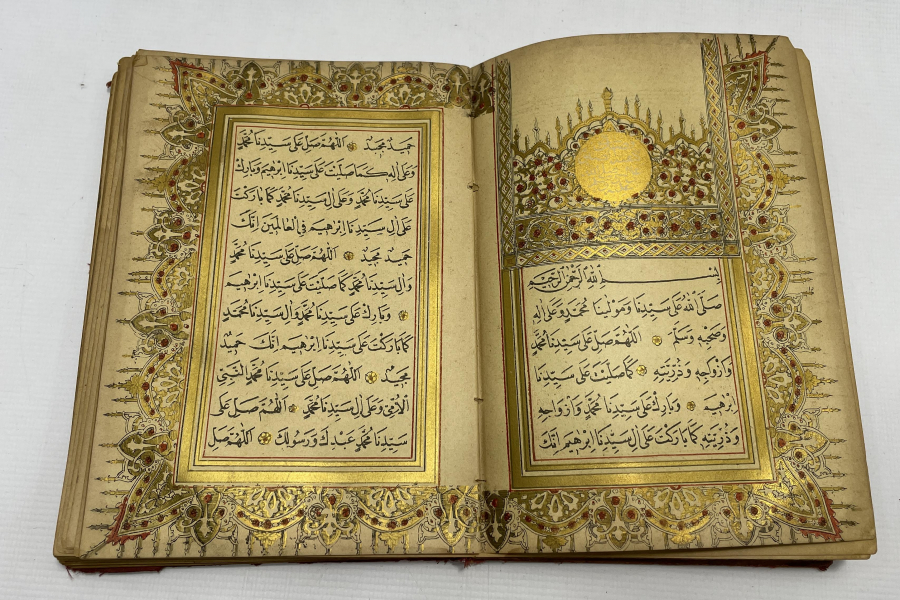 بسم الله الرحمن الرحيم
صلى الله على سيدنا ومولينا محمد وعلى اله
وصحبه وسلم اللهم صل على سيدنا محمد
وازواجه وذريته كما صليت على سيدنا
ابرهيم وبارك على سيدنا محمد وازواجه
وذريته كما باركت على ال سيدنا ابرهيم انك
حميد مجيد اللهم صل على سيدنا محمد
وعلى اله كما صليت على سيدنا ابرهيم وبارك
على سيدنا محمد وعلى ال سيدنا محمد كما باركت
على ال سيدنا ابرهيم في العالمين انك
حميد مجيد اللهم صل على سيدنا محمد
وال سيدنا محمد كما صليت على سيدنا ابرهيم
وبارك على سيدنا محمد وال سيدنا محمد
كما باركت على سيدنا ابرهيم انك حميد
مجيد اللهم صل على سيدنا محمد النبي
الامي وعلى ال سيدنا محمد اللهم صل على
سيدنا محمد عبدك ورسولك اللهم صل